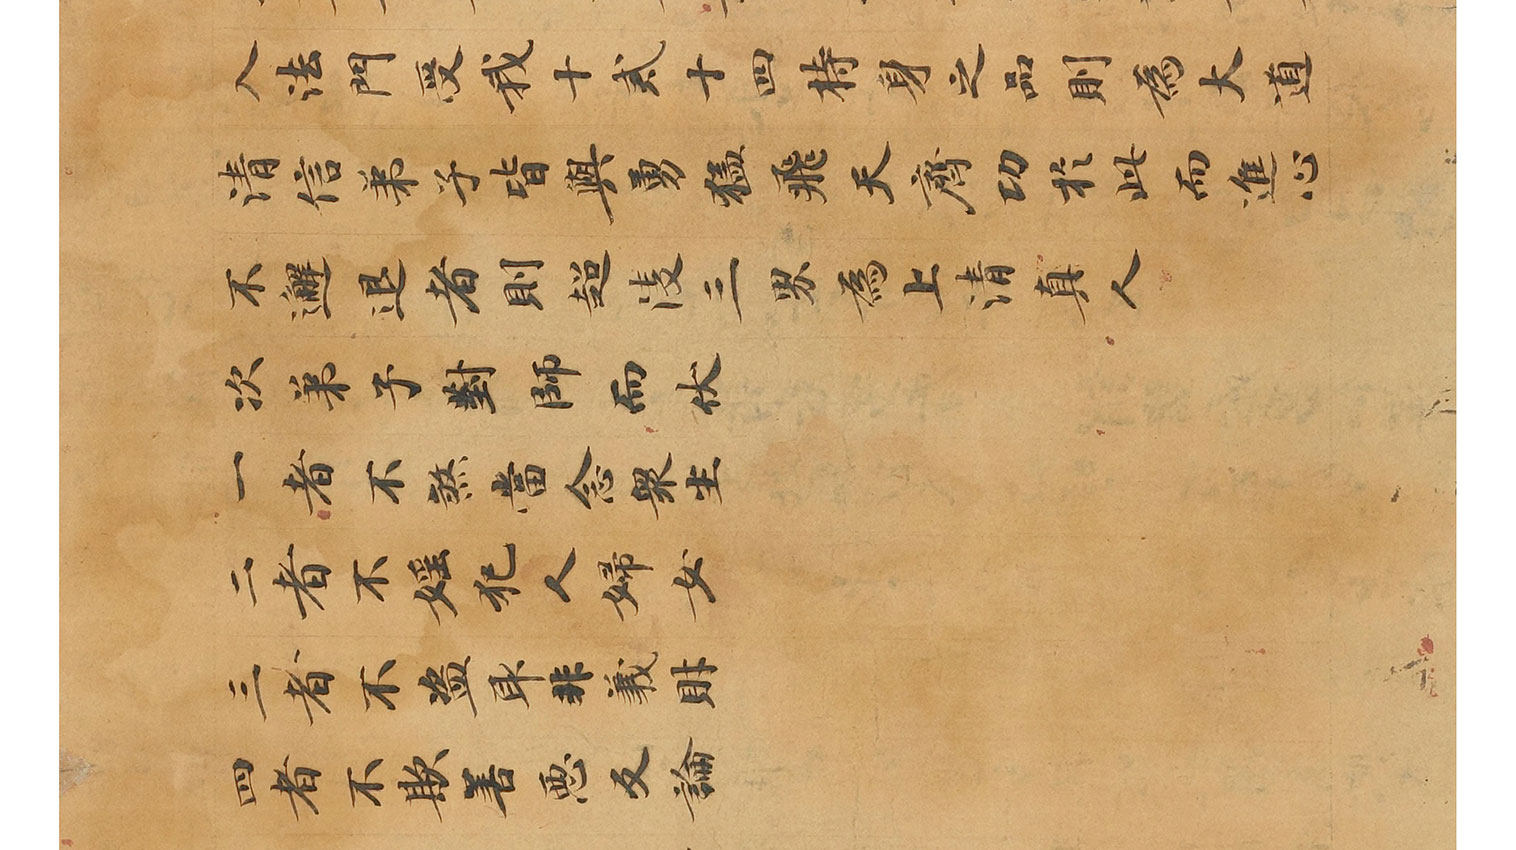 入法門受我十戒十四持身之品則為大道
清信弟子皆與勇猛飛天齊功於此而進心
不邂退者則超淩三界為上清真人
次弟子對師而伏
一者不煞當念衆生
二者不婬犯人婦女
三者不盗取非義財
四者不欺善惡反論